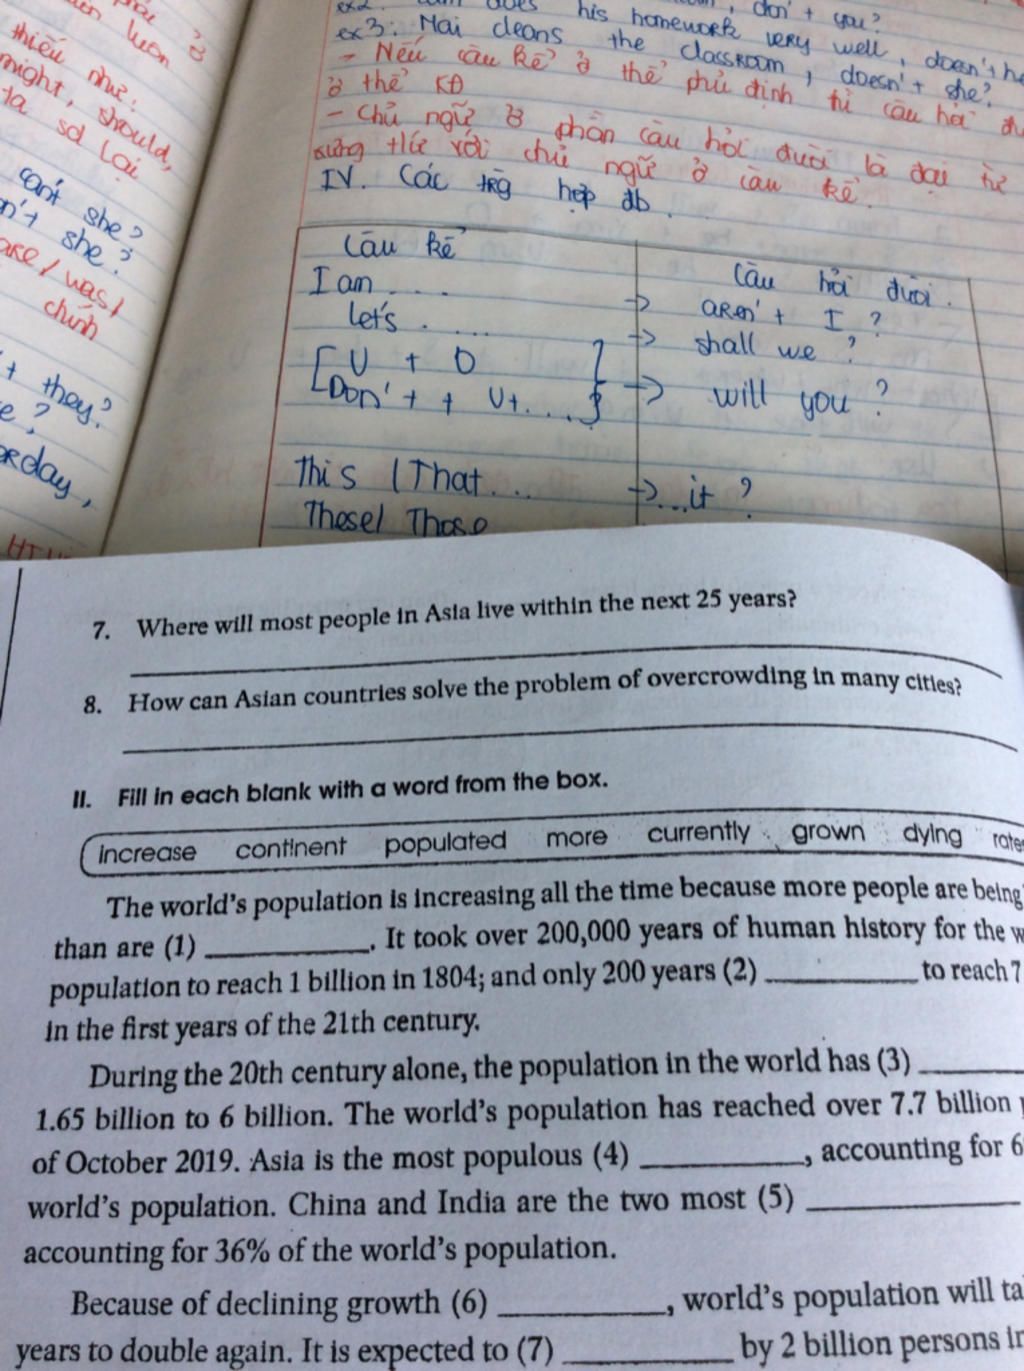 thiếu như:
might, should,
ta sd lại
can't she?
n't she?
are/was/
chính
they?
e?
rday,
ex2. does his homework very well, doesn't he
don't you?
ex3: Mai cleans the classroom, doesn't she?
- Nếu câu kể ở thể phủ định thì câu hỏi đu
ở thể KĐ
- Chủ ngữ ở phần câu hỏi đuôi là đại từ
xứng với chủ ngữ ở câu kể.
IV. Các trg hợp đb.
Câu kể
Câu hỏi đuôi.
I am . . . → aren't I ?
let's . . . . → shall we ?
[ V + O
Don't + V+.... } → will you ?
This / That ... → ...it ?
These/ Those
7. Where will most people in Asia live within the next 25 years?
8. How can Asian countries solve the problem of overcrowding in many cities?
II. Fill in each blank with a word from the box.
increase continent populated more currently grown dying rates
The world's population is increasing all the time because more people are being
than are (1) __________. It took over 200,000 years of human history for the w
population to reach 1 billion in 1804; and only 200 years (2) __________ to reach 7
in the first years of the 21th century.
During the 20th century alone, the population in the world has (3) __________
1.65 billion to 6 billion. The world's population has reached over 7.7 billion
of October 2019. Asia is the most populous (4) __________, accounting for 6
world's population. China and India are the two most (5) __________
accounting for 36% of the world's population.
Because of declining growth (6) __________, world's population will ta
years to double again. It is expected to (7) __________ by 2 billion persons in